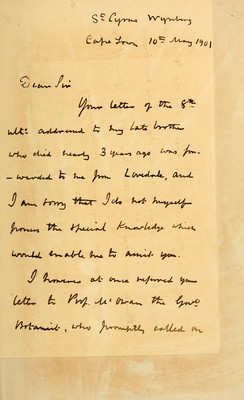 St Cyrus Wynberg
Cape Town 10th May 1901
Dear Sir
Your letter of the 8th
ulto. addressed to my late brother
who died nearly 3 years ago was for-
-warded to me from Lovedale, and
I am sorry that I do not myself
possess the special knowledge which
would enable me to assist you.
I however at once referred your
letter to Prof. McOwan the Govt.
Botanist, who promptly called on